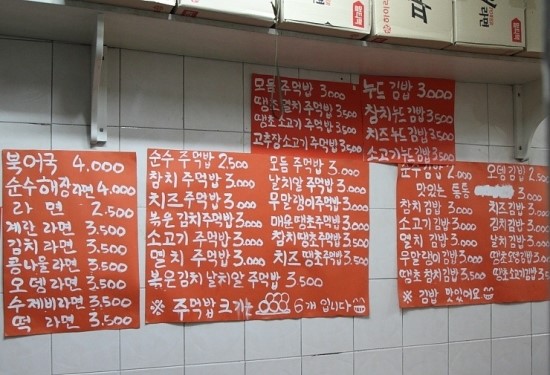 라면
모듬 주먹밥 3,000
땡초멸치주먹밥 3,500
땡초소고기 주먹밥 3,500
고추장소고기 주먹밥 3,500
누드 김밥 3,000
참치누드김밥 3,500
치즈누드김밥 3,500
소고기누드김밥 3,500
북어국 4,000
순수해장라면 4,000
라 면 2,500
계란 라면 3,500
김치 라면 3,500
콩나물라면 3,500
오뎅 라면 3,500
수제비라면 3,500
떡 라면 3,500
순수 주먹밥 2,500
참치 주먹밥 3,000
치즈 주먹밥 3,000
볶은 김치주먹밥 3,000
소고기 주먹밥 3,000
멸치 주먹밥 3,000
볶은김치 날치알 주먹밥 3,500
모듬 주먹밥 3,000
날치알 주먹밥 3,000
무말랭이주먹밥 3,000
매운땡초주먹밥 3,000
참치땡초주먹밥 3,500
치즈땡초주먹밥 3,500
※ 주먹밥크기는 6개 입니다
순수김밥 2,000
맛있는 통통
참치 김밥 3,000
소고기 김밥 3,000
멸치 김밥 3,000
무말랭이김밥 3,000
땡초 참치김밥 3,500
오뎅 김밥 2,500
치즈김밥 3,000
김치김밥 3,000
날치 김밥 3,000
땡초오뎅김밥 3,500
땡초소고기김밥 3,500
※ 김밥 맛있어요